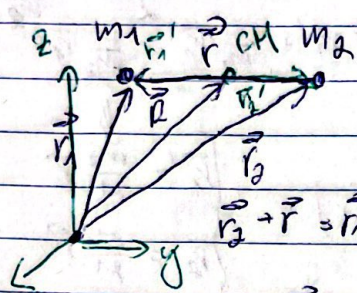 z m₁ r⃗₁' r⃗ CM m₂
r⃗₁ R⃗ r⃗₂'
r⃗₂
r⃗₂ + r⃗ = r⃗₁
y